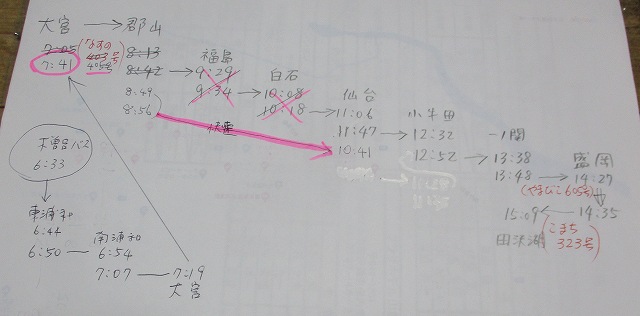 大宮 → 郡山
7:05 「なすの 403号
7:41 405号
8:13
8:42 → 福島
9:29
9:34 → 白石
10:08
10:18 → 仙台
8:49
8:56 快速
11:06
11:47 → 小牛田
10:41
12:32
12:52 → 一関
13:38
13:48 → 盛岡
14:27
(やまびこ605号)
14:35
15:09 ←
田沢湖
(こまち
323号)
木曽呂バス
6:33
東浦和
6:44
6:50 — 南浦和
6:54
7:07 — 7:19
大宮